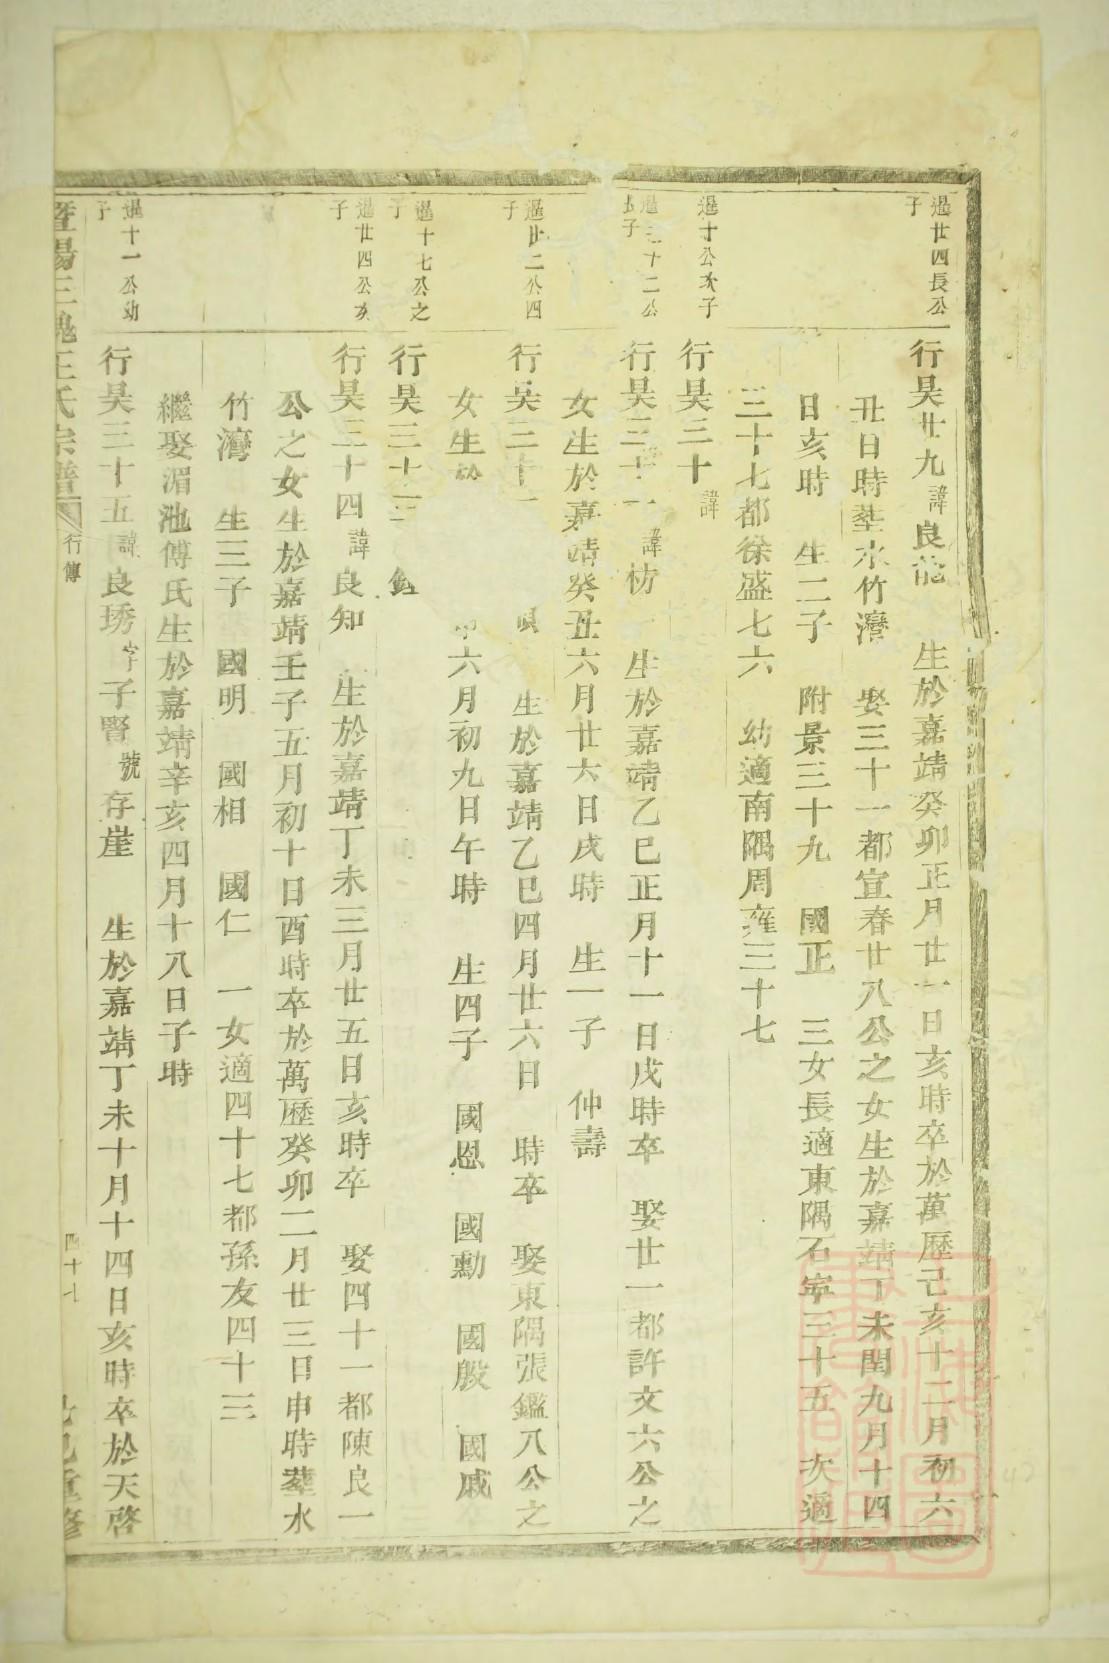 過廿四長公
子
行昊廿九 諱 良能 生於嘉靖癸卯正月廿一日亥時卒於萬歷己亥十二月初六
丑日時塟水竹灣 娶三十一都宣春廿八公之女生於嘉靖丁未閏九月十四
日亥時 生二子 附景三十九 國正 三女長適東隅石寧三十五 次適
三十七都徐盛七六 幼適南隅周雍三十七
過十公次子
行昊三十 諱
十二公
長子
行昊三十一 諱 枋 生於嘉靖乙巳正月十一日戌時卒 娶廿一都許文六公之
女生於嘉靖癸丑六月廿六日戌時 生一子 仲壽
過廿二公四
子
行昊三十二 生於嘉靖乙巳四月廿六日 時卒 娶東隅張鑑八公之
女生於 六月初九日午時 生四子 國恩 國勳 國殷 國戚
過十七公之
子
行昊三十三
過廿四公次
子
行昊三十四 諱 良知 生於嘉靖丁未三月廿五日亥時卒 娶四十一都陳良一
公之女生於嘉靖壬子五月初十日酉時卒於萬歷癸卯二月廿三日申時塟水
竹灣 生三子 國明 國相 國仁 一女適四十七都孫友四十三
繼娶湄池傅氏生於嘉靖辛亥四月十八日子時
過十一公幼
子
行昊三十五 諱 良琇 字 子賢 號 存崖 生於嘉靖丁未十月十四日亥時卒於天啓
暨陽三槐王氏宗譜 行傳 四十七 重修